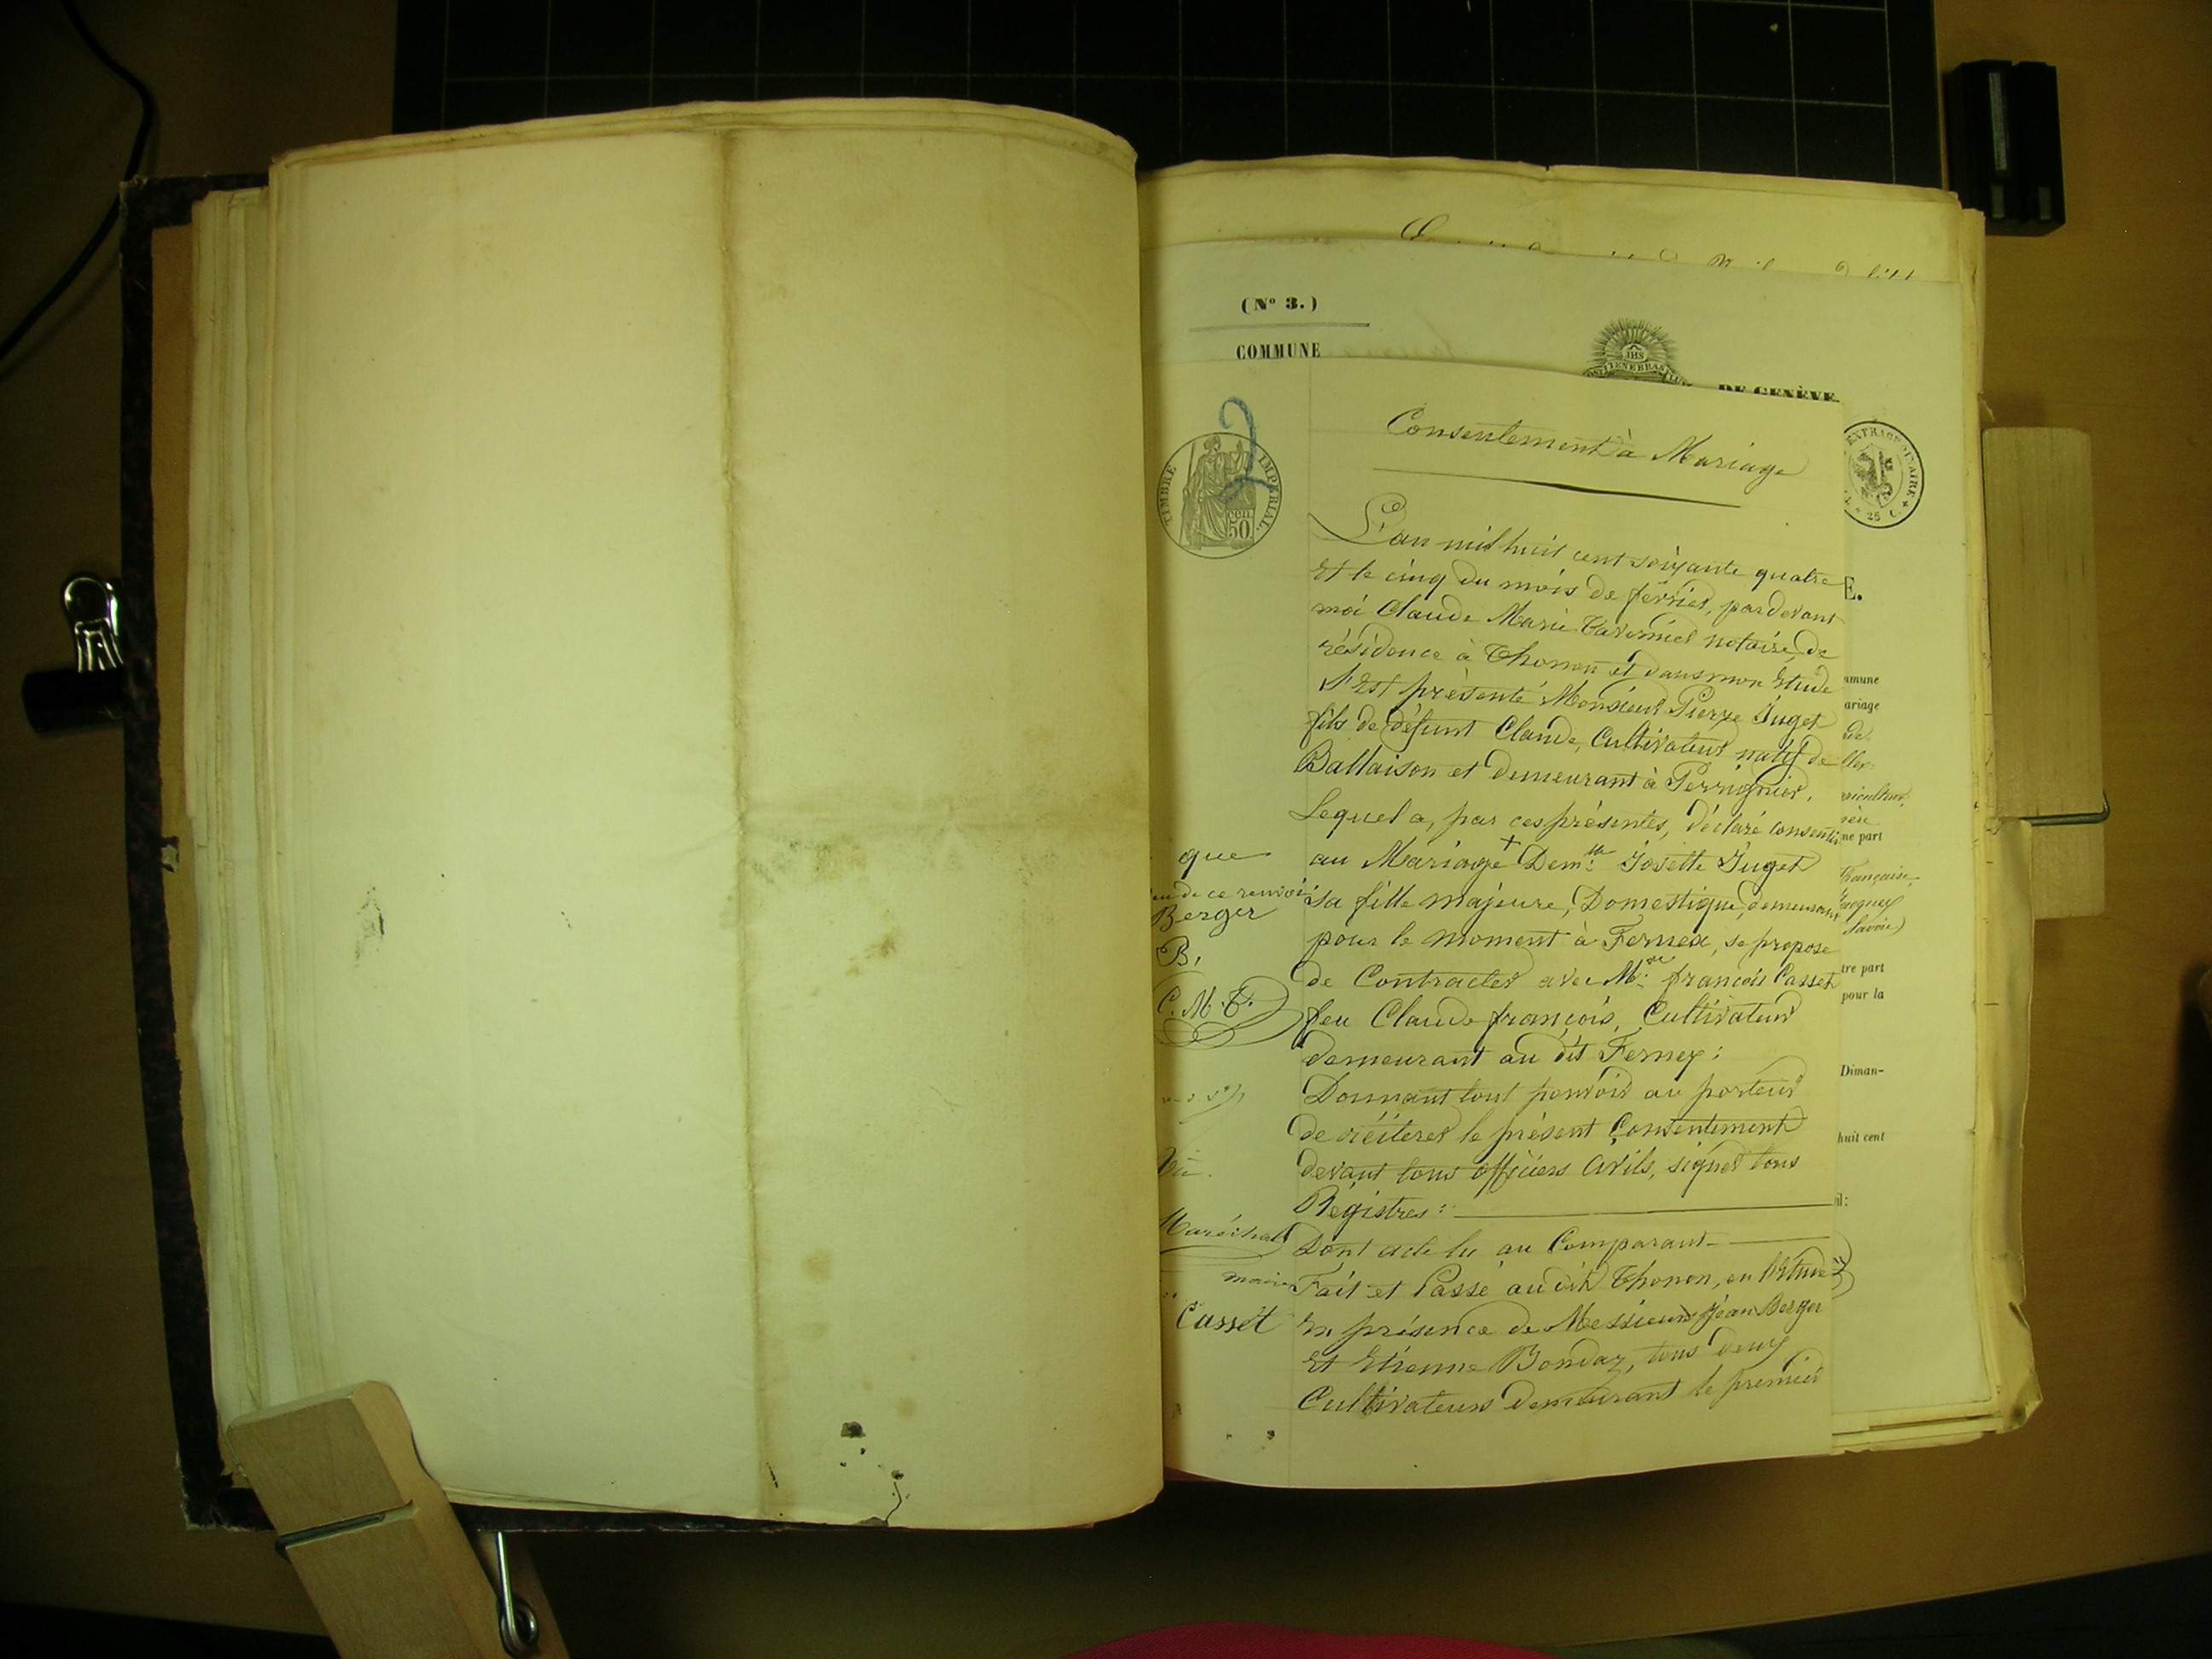 (Nº 3.)
COMMUNE
IHS
TENEBRAS
DE GENÈVE
2
TIMBRE IMPÉRIAL.
50
25 C.
Consentement à Mariage
L'an mil huit cent soixante quatre
Et le cinq du mois de février, par devant
moi Claude Marie Tavernier notaire de
résidence à Thonon et dans mon Etude
S'Est présenté Monsieur Pierre Juget
fils de défunt Claude, Cultivateur natif de
Ballaison et demeurant à Perrignier,
Lequel a, par ces présentes, déclaré consentir
au Mariage + Dem.lle Josette Juget
sa fille majeure, Domestique, demeurant
pour le moment à Fernex, se propose
de Contracter avec Mr. françois Casset
feu Claude françois, Cultivateur
demeurant au dit Ferney:
Donnant tout pouvoir au porteur
de réiterer le présent Consentement
devant tous officiers Civils, signer tous
Régistres:
Dont acte lu au Comparant
Fait et Passé au dit Thonon, en Etude
En présence de Messieurs Jean Berger
Et Etienne Bondaz, tous deux
Cultivateurs demeurant le premier
que
de ce renvoi
Berger
B,
C. M. T.
Vu.
Maréchal
maire
Casset
E.
mmune
ariage
de
ne part
Française
Savoie)
tre part
pour la
Diman-
huit cent
il: